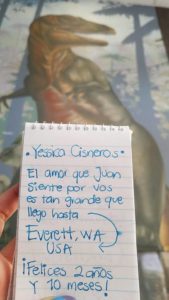 • Yessica Cisneros •
El amor que Juan
siente por vos
es tan grande que
llego hasta
Everett, WA
USA
¡Felices 2 años
y 10 meses!